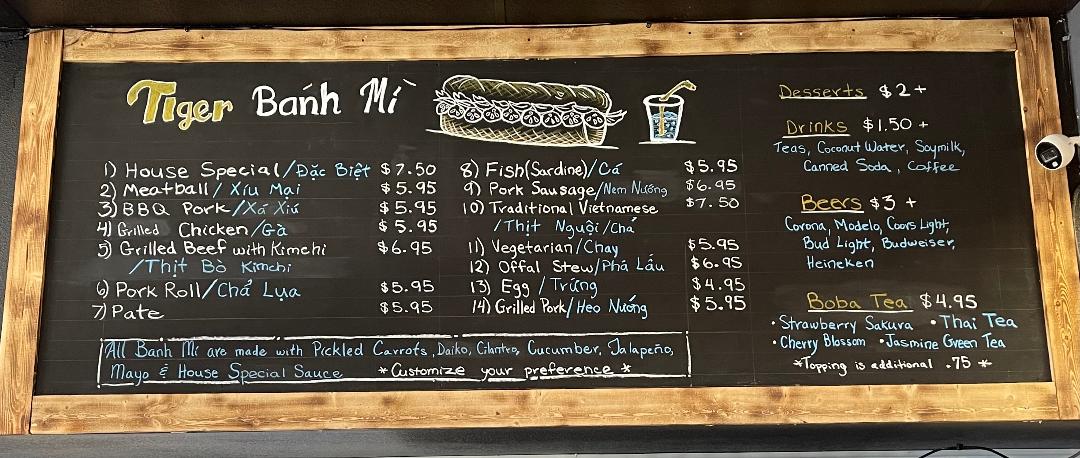 Tiger Banh Mì
1) House Special/Đặc Biệt $7.50
2) Meatball/Xíu Mại $5.95
3) BBQ Pork/Xá Xíu $5.95
4) Grilled Chicken/Gà $5.95
5) Grilled Beef with Kimchi $6.95
/Thịt Bò Kimchi
6) Pork Roll/Chả Lụa $5.95
7) Pate $5.95
8) Fish(Sardine)/Cá $5.95
9) Pork Sausage/Nem Nướng $6.95
10) Traditional Vietnamese $7.50
/Thịt Nguội/Chả
11) Vegetarian/Chay $5.95
12) Offal Stew/Phá Lấu $6.95
13) Egg/Trứng $4.95
14) Grilled Pork/Heo Nướng $5.95
All Banh Mi are made with Pickled Carrots, Daiko, Cilantro, Cucumber, Jalapeño,
Mayo & House Special Sauce *Customize your preference*
Desserts $2+
Drinks $1.50+
Teas, Coconut Water, Soymilk,
Canned Soda, Coffee
Beers $3+
Corona, Modelo, Coors Light,
Bud Light, Budweiser,
Heineken
Boba Tea $4.95
• Strawberry Sakura • Thai Tea
• Cherry Blossom • Jasmine Green Tea
*Topping is additional .75*